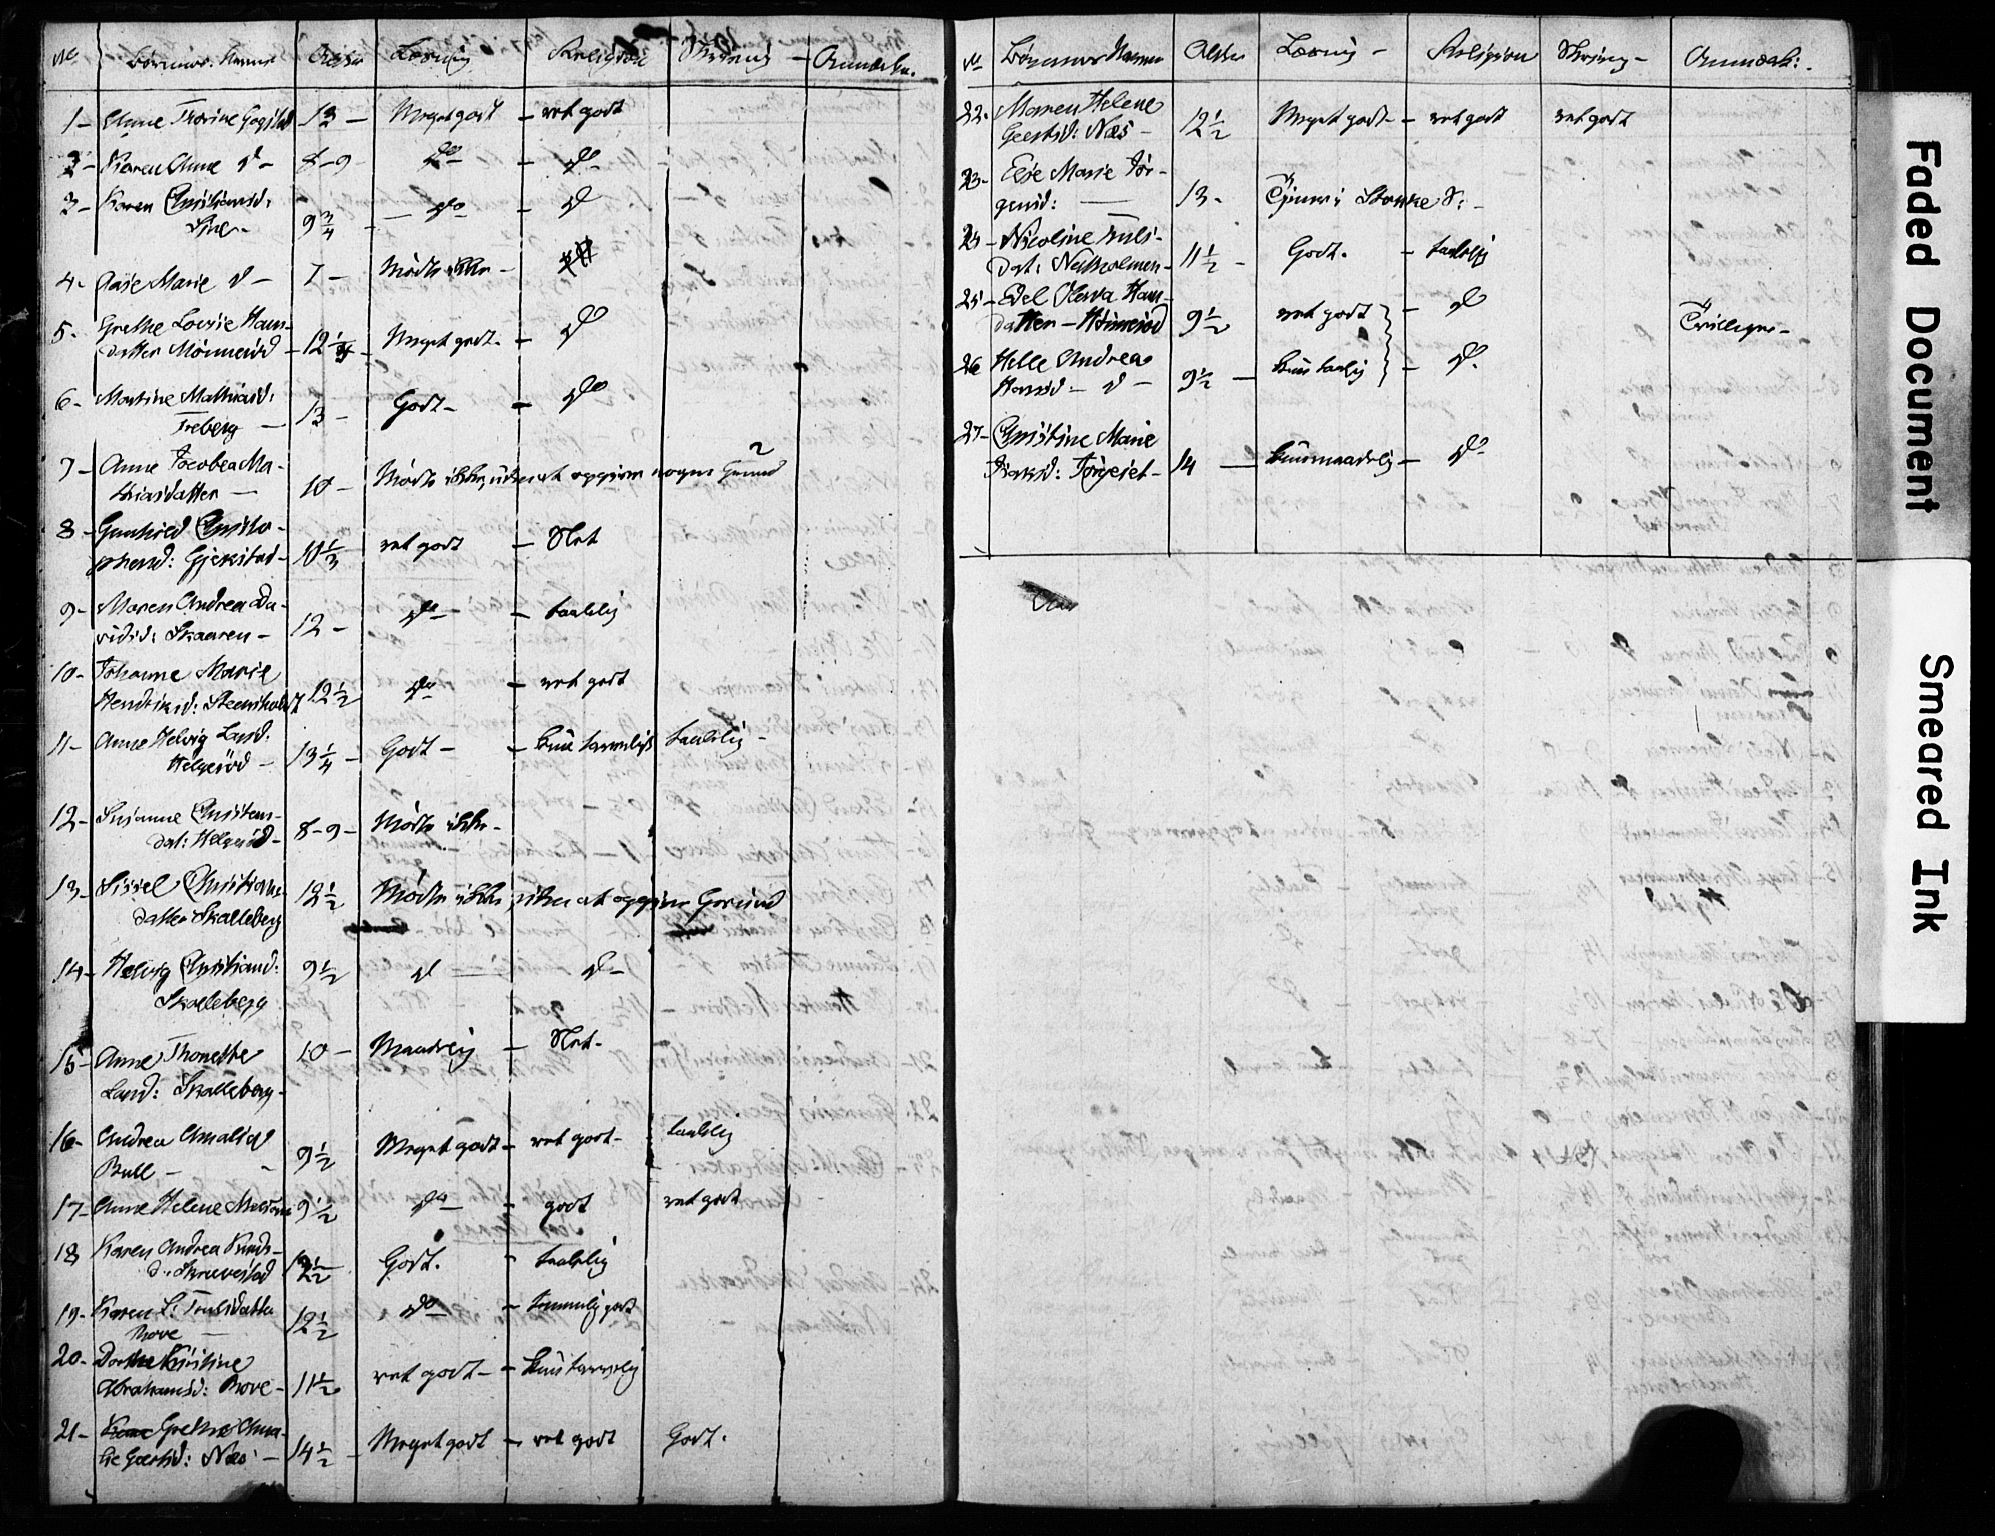 No Børnenes Navne Alder Læsning Religion Skrivning Anmærkn.
1 - Anne Thorine Gogstad 13 - Meget godt - ret godt
2 - Karen Anne do - 8-9 do - do
3 - Karen Christiansd:
9 3/4 - do - do
4 - Marie do - 7 - Mødte ikke -
5 - Grethe Lovise Hans-
datter 12 1/4 - Meget godt - do
6 - Martine Mathiasd:
Treberg - 13 - Godt - do
7 - Anne Jacobea Ma-
thiasdatter - 10 - Mødte ikke, uden at opgive nogen Grund
8 - Gunhild Christo-
phersd: Gjekstad - 10 1/3 ret godt - Slet
9 - Maren Andrea Da-
vidsd: Skaaren - 12 - do - taalelig
10 - Johanne Marie
Hendriksd: Steensholdt 12 1/2 do - ret godt
11 - Anne Helvig Land:
Helgerød - 13 1/4 - Godt - kun tarvelig taalelig -
12 - Susanne Christens-
dat: Helgerød - 8-9 - Mødte ikke -
13 - Sissel Christians-
datter Skalleberg 12 1/2 Mødte ikke, uden at opgive Grund
14 - Helvig Christiansd:
Skalleberg 9 1/2 do - do -
15 - Anne Thonette
Land: Skalleberg - 10 - Maadelig - Slet -
16 - Andrea Amalia
Bull - 9 1/2 Meget godt - ret godt - taalelig
17 - Anne Helene 9 1/2 do - godt ret godt
18 Karen Andrea Knuds-
d: 12 1/2 Godt. - taalelig
19 - Karen L: Trulsdatter
Hove - 12 1/2 do - temmelig godt
20 - Dorthe Kirstine
Abrahamsd: Hove - 11 1/2 ret godt - kun tarvelig
21 - Grethe Ama-
lie Geertsd: Næs - 14 1/2 - Meget godt - ret godt Godt.
No Børnenes Navne Alder Læsning - Religion Skrivng - Anmærk:
22 - Maren Helene
Geertsd: Næs - 12 1/2 Meget godt - ret godt ret godt
23 - Else Marie Jør-
gensd: - 13 - Tjener i Stokke S: -
24 - Nicoline Truls-
dat: Natholmen - 11 1/2 - Godt. - taalelig
25 - Edel Olava Hans-
datter - 9 1/2 ret godt - do Tvillinger -
26 Helle Andrea
Hansd - do - 9 1/2 - kun taalelig - do
27 - Christine Marie
Isaksd: - 14 - kun maadelig - do
Faded Document
Smeared Ink